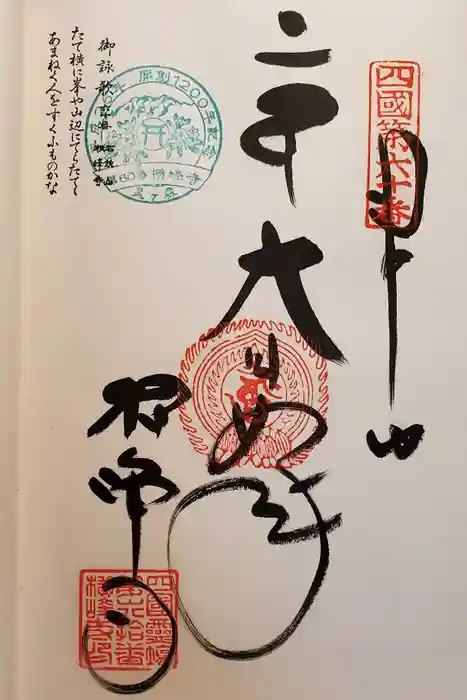 四國第六十番
大日如来
横峰寺
四國靈場
第六拾番
横峰寺印
開創1200年記念
第60番横峰寺
星ヶ森
御詠歌
横峰寺
たて横に峯や山辺にてらたてゝ
あまねく人をすくふものかな